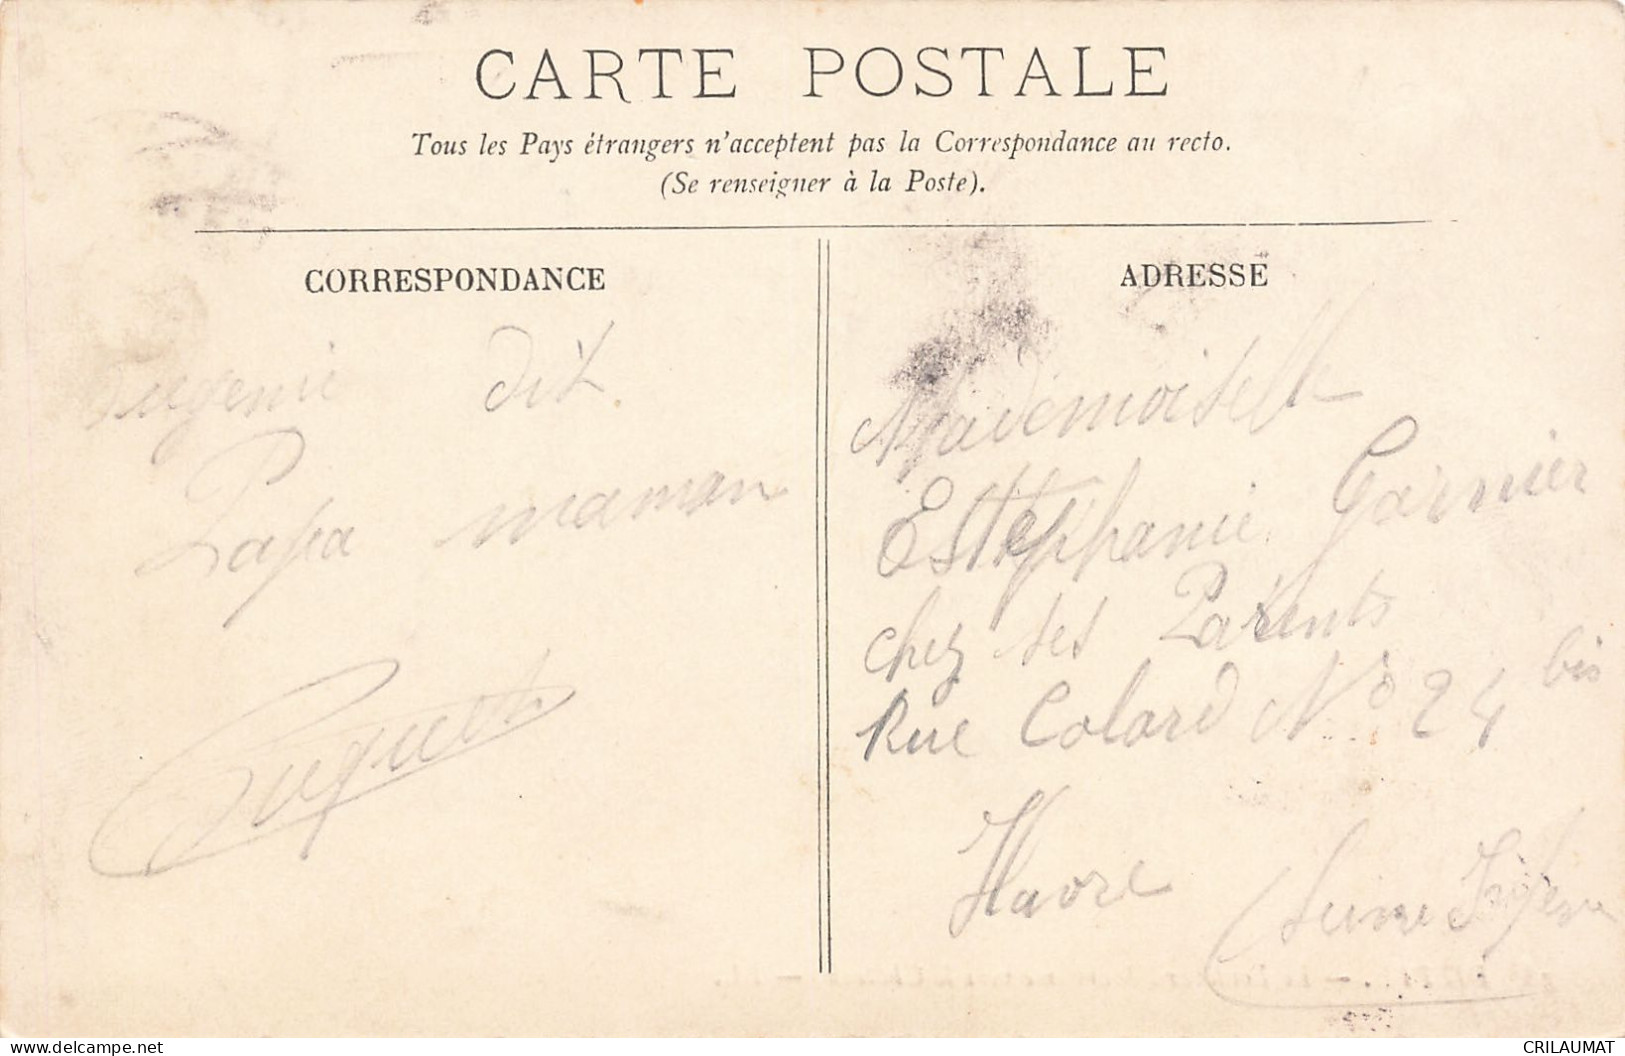 CARTE POSTALE
Tous les Pays étrangers n'acceptent pas la Correspondance au recto.
(Se renseigner à la Poste).
CORRESPONDANCE
Eugenie dit
Papa maman
ADRESSE
Mademoiselle
Esttephanie Garnier
chez ses Parents
Rue Colard N° 24 bis
Havre
Seine Infre
CRILAUMAT